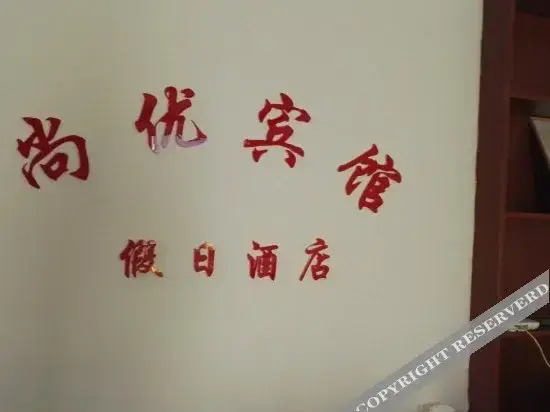 尚优宾馆
假日酒店
COPYRIGHT RESERVERD